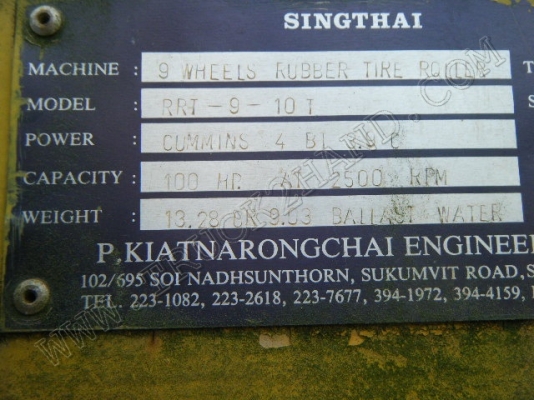 SINGTHAI
MACHINE : 9 WHEELS RUBBER TIRE ROLLER T
MODEL : RRT-9-10T S
POWER : CUMMINS 4 BT
CAPACITY : 100 HP. 2500 RPM
WEIGHT : 13.28 9.03 BALLAST WATER
P.KIATNARONGCHAI ENGINEE
102/695 SOI NADHSUNTHORN, SUKUMVIT ROAD, S
TEL. 223-1082, 223-2618, 223-7677, 394-1972, 394-4159,
WWW.TRUCK2HAND.COM